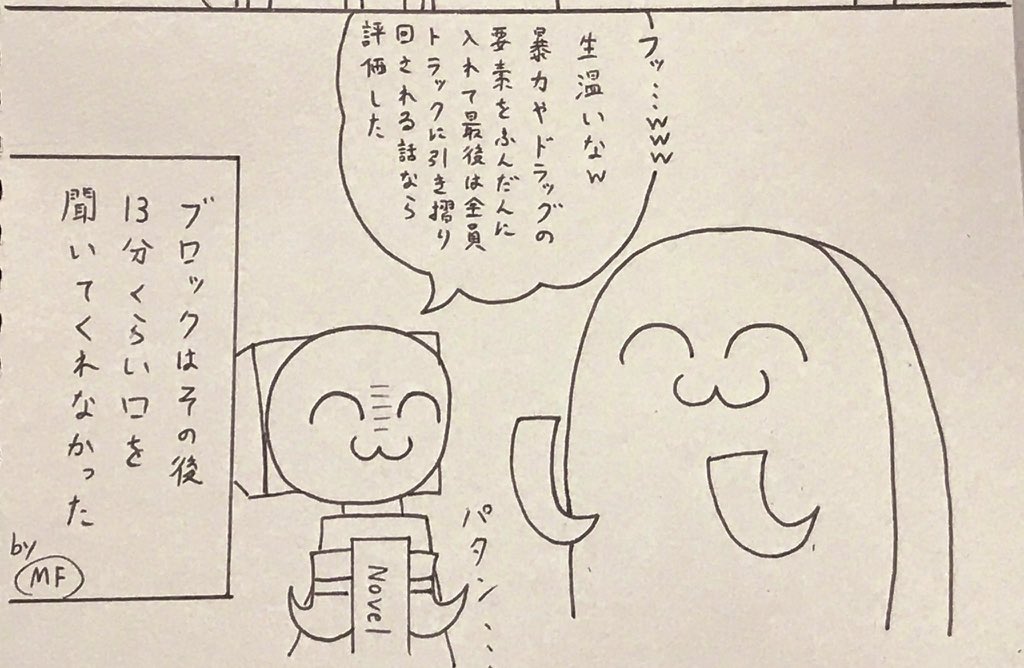 フッ…www
生温いなw
暴力やドラッグの
要素をふんだんに
入れて最後は全員
トラックに引き摺り
回される話なら
評価した
パタン…
Novel
ブロックはその後
13分くらい口を
聞いてくれなかった
by MF